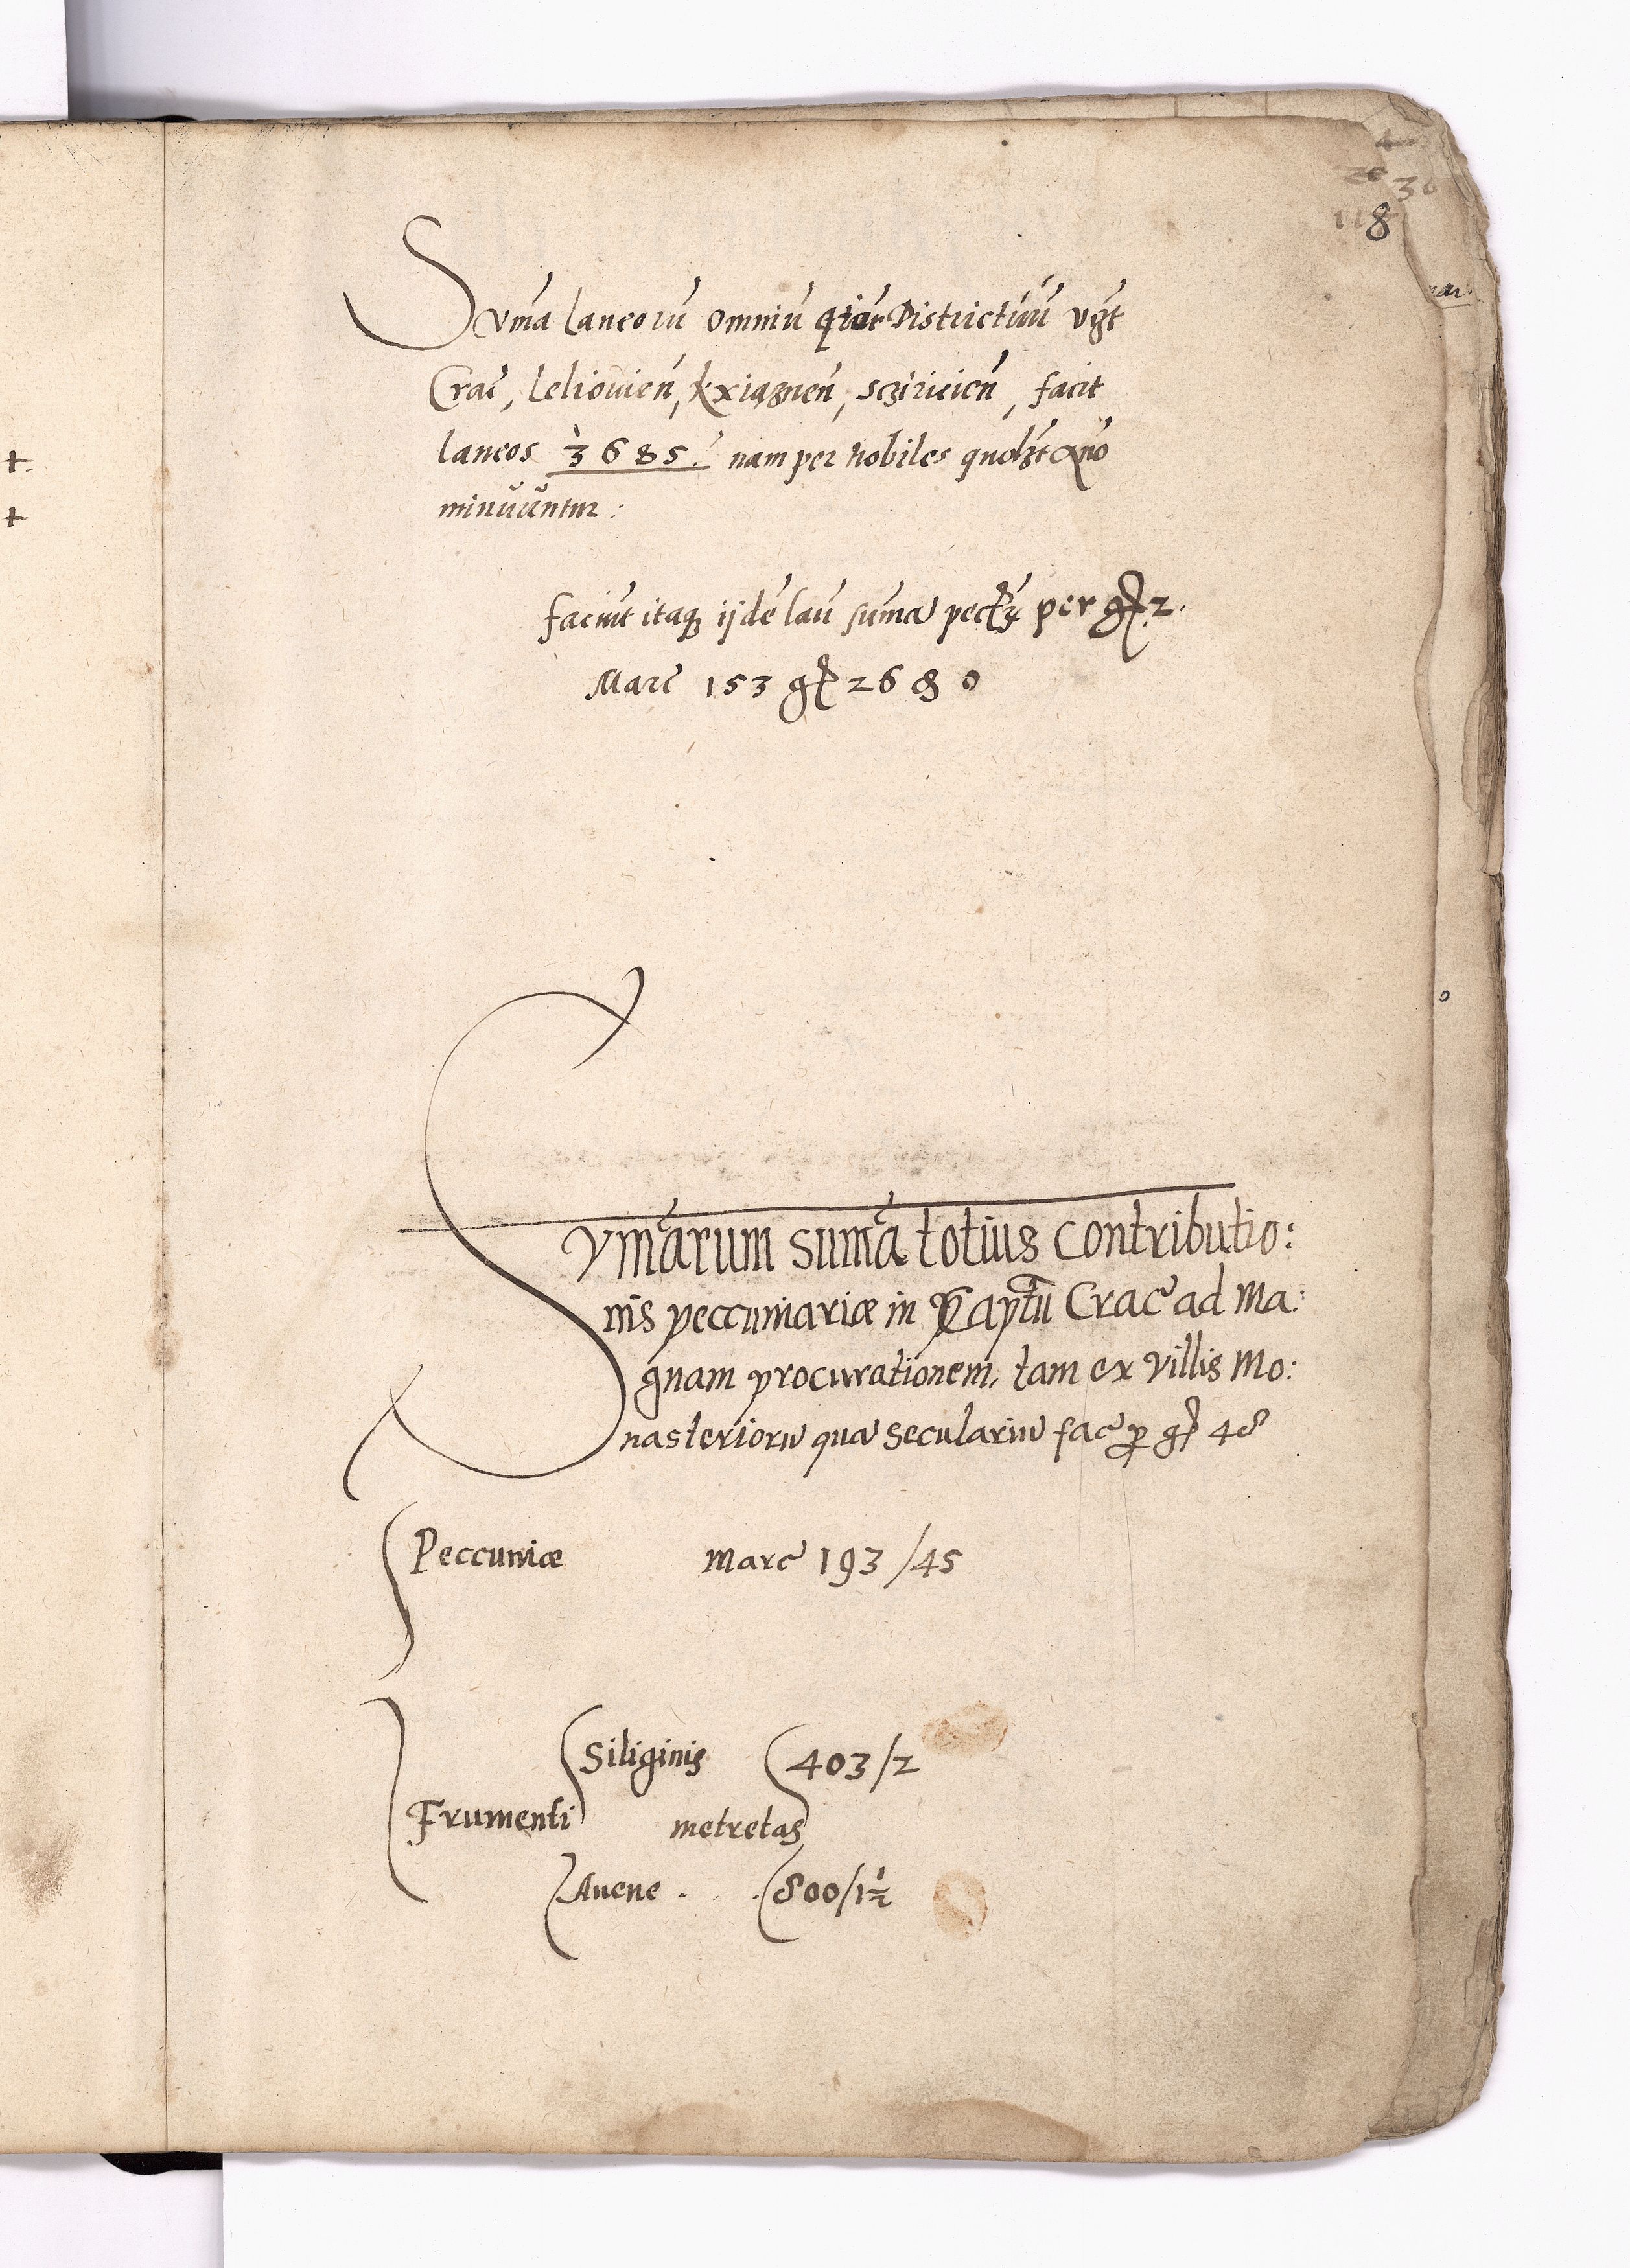 118
Suma laneoru omniu Districtuu vȝt
Crac, leliovien, kxiąznen, scziricien, facit
laneos 3685. nam per nobiles quolȝt
minuuntur:
faciut itaq ijde lan suma per gr 2.
Marc 153 gr 26 8 0
Sumarum suma totius contributio:
nis peccuniariæ in Crac ad Ma:
gnam procurationem, tam ex villis Mo:
nasterioru qua seculariu fac p gr 48
Peccuniæ Marc 193 /45
Siliginis 403/2
Frumenti metretas
Auene . . . 800/1½